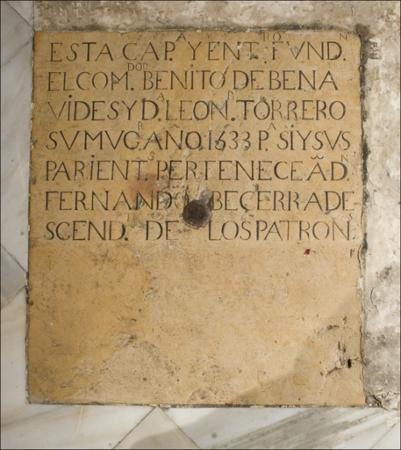 ESTA CAP.ᴬ Y ENT.ᴿᴼ FVND.ᴺ
EL COM.ᴰᴼᴿ BENITO DE BENA
VIDES Y D.ᴬ LEON.ᴿ TORRERO
SV MVG.ᴿ AÑO.1633 P.ᴬ SI Y SVS
PARIENT.ˢ PERTENECE A D.ᴺ
FERNANDO BEÇERRA DE-
SCEND. DE LOS PATRON.